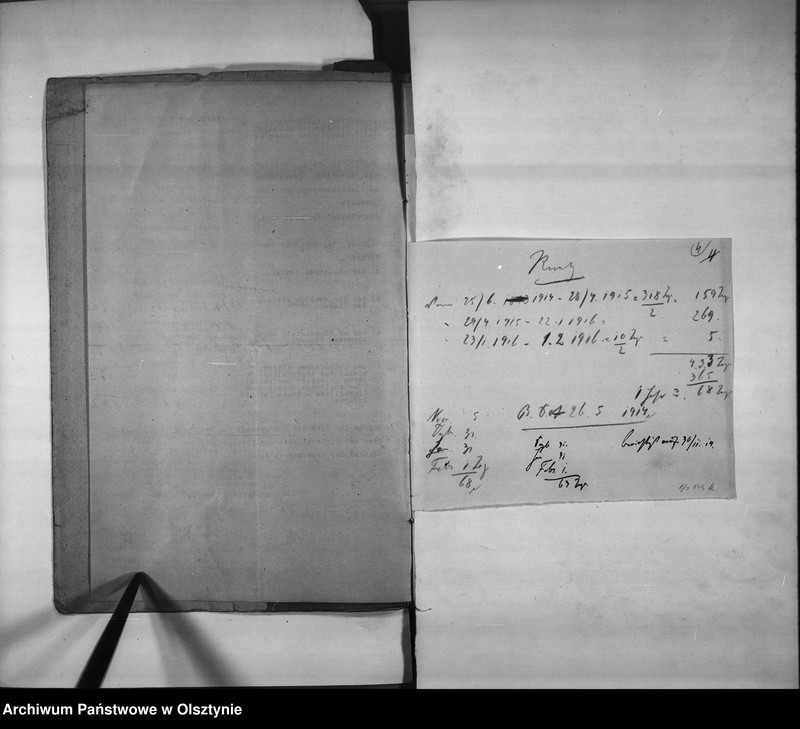 4
Vom 25/6. 1914 - 28/4. 1915 = 318 Tg. = 159 Tg
2
" 29/4 1915 - 22.1 1916 = 269.
" 23/1. 1916 - 1.2 1916 = 10 Tg = 5.
2
433 Tg
365
1 Jahr = 68 Tg
Nov. 5 B. D. A 26. 5 1914
Dzb. 31 Dzb 31.
Jan. 31 31 30/11. 14.
Febr 1 Tg Febr 1.
68 63 Tg
Archiwum Państwowe w Olsztynie